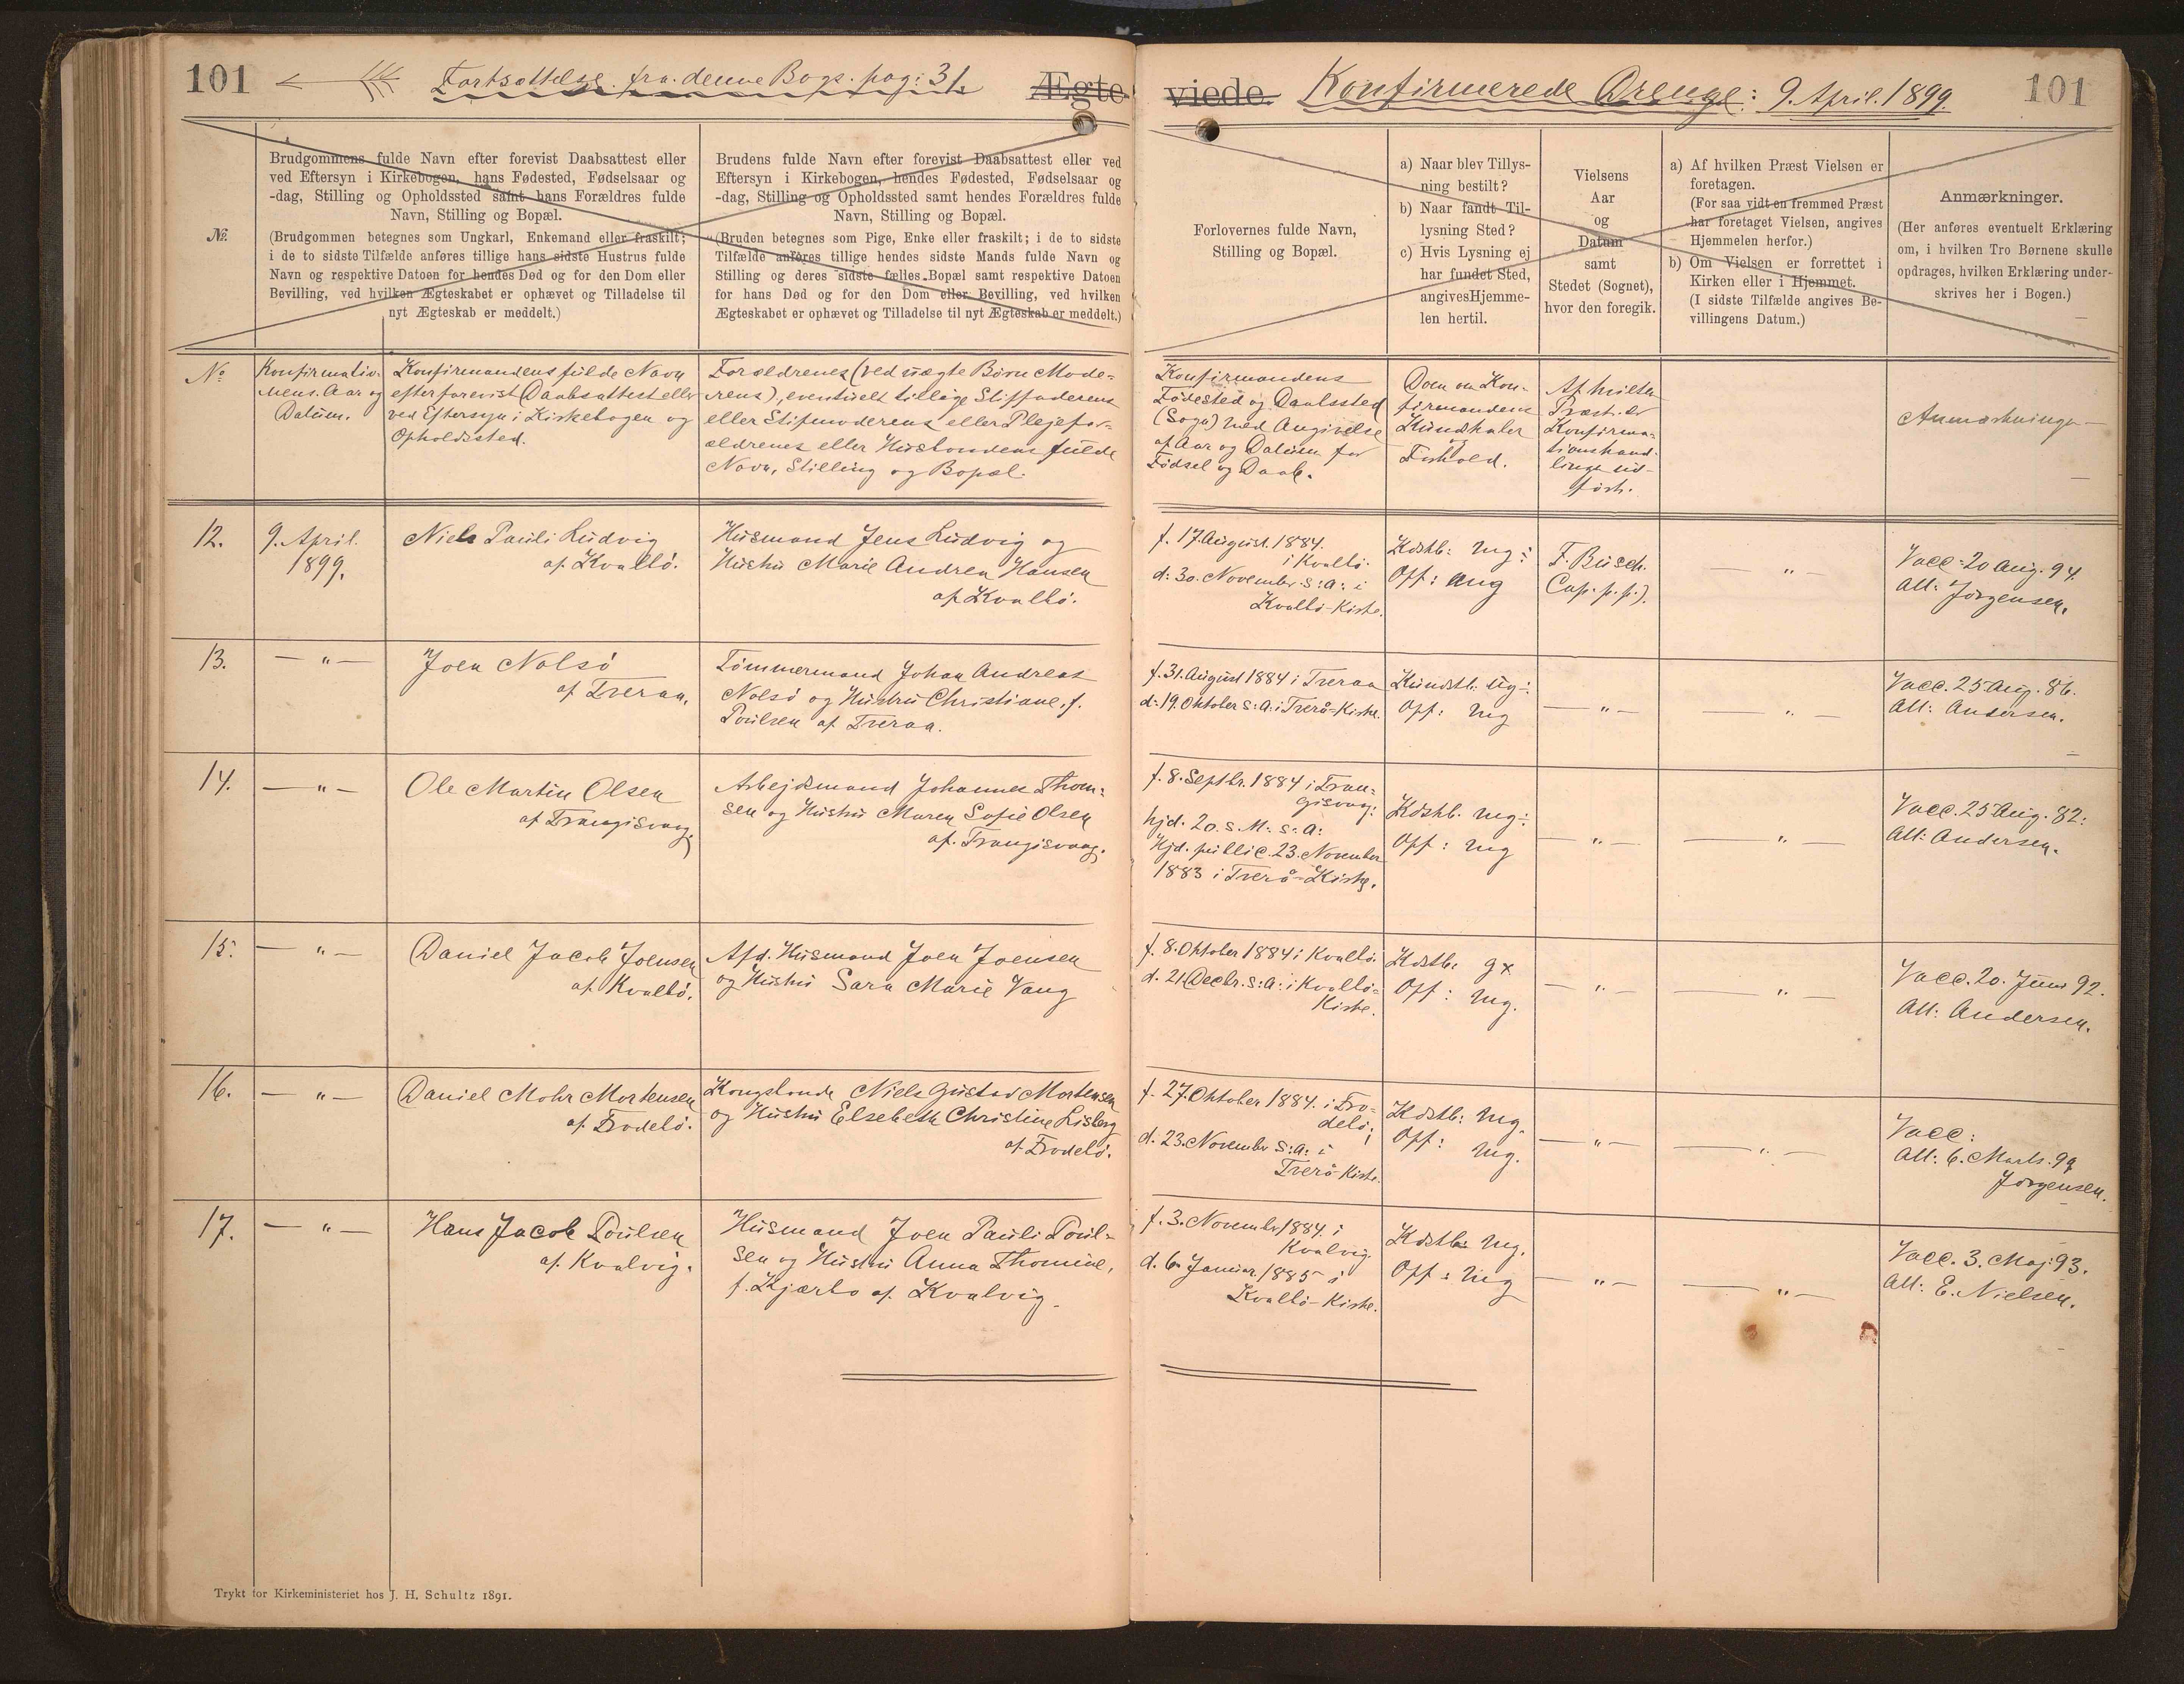 101
Fortsættelse fra denne Bogs pag: 31.
Ægte-
viede.
Konfirmerede Drenge: 9. April. 1899.
101
No.
Brudgommens fulde Navn efter forevist Daabsattest eller
ved Eftersyn i Kirkebogen, hans Fødested, Fødselsaar og
-dag, Stilling og Opholdssted samt hans Forældres fulde
Navn, Stilling og Bopæl.
(Brudgommen betegnes som Ungkarl, Enkemand eller fraskilt;
i de to sidste Tilfælde anføres tillige hans sidste Hustrus fulde
Navn og respektive Datoen for hendes Død og for den Dom eller
Bevilling, ved hvilken Ægteskabet er ophævet og Tilladelse til
nyt Ægteskab er meddelt.)
Brudens fulde Navn efter forevist Daabsattest eller ved
Eftersyn i Kirkebogen, hendes Fødested, Fødselsaar og
-dag, Stilling og Opholdssted samt hendes Forældres fulde
Navn, Stilling og Bopæl.
(Bruden betegnes som Pige, Enke eller fraskilt; i de to sidste
Tilfælde anføres tillige hendes sidste Mands fulde Navn og
Stilling og deres sidste fælles Bopæl samt respektive Datoen
for hans Død og for den Dom eller Bevilling, ved hvilken
Ægteskabet er ophævet og Tilladelse til nyt Ægteskab er meddelt.)
Forlovernes fulde Navn,
Stilling og Bopæl.
a) Naar blev Tillys-
ning bestilt?
b) Naar fandt Til-
lysning Sted?
c) Hvis Lysning ej
har fundet Sted,
angives Hjemme-
len hertil.
Vielsens
Aar
og
Datum
samt
Stedet (Sognet),
hvor den foregik.
a) Af hvilken Præst Vielsen er
foretagen.
(For saa vidt en fremmed Præst
har foretaget Vielsen, angives
Hjemmelen herfor.)
b) Om Vielsen er forrettet i
Kirken eller i Hjemmet.
(I sidste Tilfælde angives Be-
villingens Datum.)
Anmærkninger.
(Her anføres eventuelt Erklæring
om, i hvilken Tro Børnene skulle
opdrages, hvilken Erklæring under-
skrives her i Bogen.)
No
Konfirmatio-
nens Aar og
Datum.
Konfirmandens fulde Navn
efter forevist Daabsattest eller
ved Eftersyn i Kirkebogen og
Opholdssted.
Forældrenes (ved uægte Børn Mode-
rens), eventuelt tillige Stiffaderens
eller Stifmoderens eller Plejefor-
ældrenes eller Husbondens fulde
Navn, Stilling og Bopæl.
Konfirmandens
Fødested og Daabssted
(Sogn) med Angivelse
af Aar og Datum for
Fødsel og Daab.
Dom om Kon-
firmandens
Kundskaber
og
Forhold.
Af hvilken
Præst er
Konfirma-
tionshand-
lingen ud-
ført.
Anmærkninger
12.
9. April.
1899.
Niels Pauli Ludvig
af Kvalbø.
Husmand Jens Ludvig og
Hustru Marie Andrea Hansen
af Kvalbø.
f. 17. August. 1884.
i Kvalbø.
d: 30. November s: a: i
Kvalbø-Kirke.
Kdskb: mg÷
Opf: mg
F. Busch.
Cap. p. p.).
— " —
Vacc: 20 Aug. 94.
Att: Jørgensen.
13.
— " —
Joen Nolsø
af Tveraa.
Tømmermand Johan Andreas
Nolsø og Hustru Christiane, f.
Poulsen af Tveraa.
f. 31. August 1884 i Tveraa
d: 19. Oktober s: a: i Tverå-Kirke.
Kundskb. ug÷
Opf: mg
— " —
— " —
Vacc. 25 Aug. 86.
Att: Andersen.
14.
— " —
Ole Martin Olsen
af Trangisvaag.
Arbejdsmand Johannes Thom-
sen og Hustru Maren Sofie Olsen
af Trangisvaag.
f. 8. Septbr. 1884 i Tran-
gisvaag.
hjd. 20. s. M. s: a:
Hjd. public. 23. November
1883 i Tverå-Kirke.
Kdskb. mg÷
Opf: mg
— " —
— " —
Vacc. 25 Aug. 82:
Att: Andersen.
15.
— " —
Daniel Jacob Joensen
af Kvalbø.
Afd. Husmand Joen Joensen
og Hustru Sara Marie Vang
f. 8. Oktober 1884 i Kvalbø.
d. 21 Decbr. s: a: i Kvalbø-
Kirke.
Kdskb: gx
Opf: mg.
— " —
— " —
Vacc. 20. Juni 92.
Att: Andersen.
16.
— " —
Daniel Mohr Mortensen
af Frodebø.
Kongsbonde Niels Gustav Mortensen
og Hustru Elsebeth Christine Lisberg
af Frodebø.
f. 27. Oktober 1884. i Fro-
debø;
d. 23. November s: a: i
Tverå-Kirke.
Kdskb: mg.
Opf: mg.
— " —
— " —
Vacc:
Att: 6. Marts. 99
Jørgensen.
17.
— " —
Hans Jacob Poulsen
af Kvalvig.
Husmand Joen Pauli Poul-
sen og Hustru Anna Thomine,
f. Kjærbo af Kvalvig.
f. 3. November 1884. i
Kvalvig.
d. 6 Januar 1885 i
Kvalbø-Kirke.
Kdskb: mg.
Opf: mg
— " —
— " —
Vacc. 3. Maj. 93.
Att: E. Nielsen.
Trykt for Kirkeministeriet hos J. H. Schultz 1891.